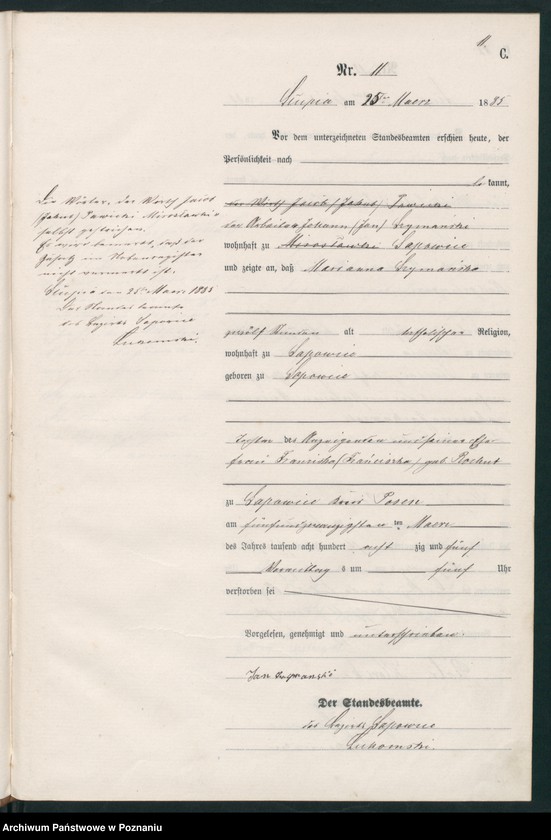 11.
C.
Nr. 11
Słupia am 25ten Maerz 1885
Vor dem unterzeichneten Standesbeamten erschien heute, der
Persönlichkeit nach
be kannt,
der Wirth Jacob /Jakub/ Sawicki
der Arbeiter Johann /Jan/ Szymański
wohnhaft zu Mirosławki Sapowice
und zeigte an, daß Marianna Szymańska
zwölf Stunden alt katholischer Religion,
wohnhaft zu Sapowice
geboren zu Sapowice
Tochter des Anzeigenden und seiner Ehe
frau Franziska /Franciszka/ geb
zu Sapowice Kreis Posen
am fünfundzwanzigsten ten Maerz
des Jahres tausend acht hundert acht zig und fünf
Vormittag s um fünf Uhr
verstorben sei
Vorgelesen, genehmigt und unterschrieben.
Jan Szymanski
Der Standesbeamte.
des Bezirks Sapowice
Lukomski.
Die Wörter, der Wirth Jacob
/Jakub/ Sawicki Mirosławki
selbst gestrichen.
Es wird bemerkt, daß der
im Nebenregister
nicht vermerkt ist.
Słupia den 25ten Maerz 1885
Der Standesbeamte
des Bezirks Sapowice
Lukomski.
Archiwum Państwowe w Poznaniu